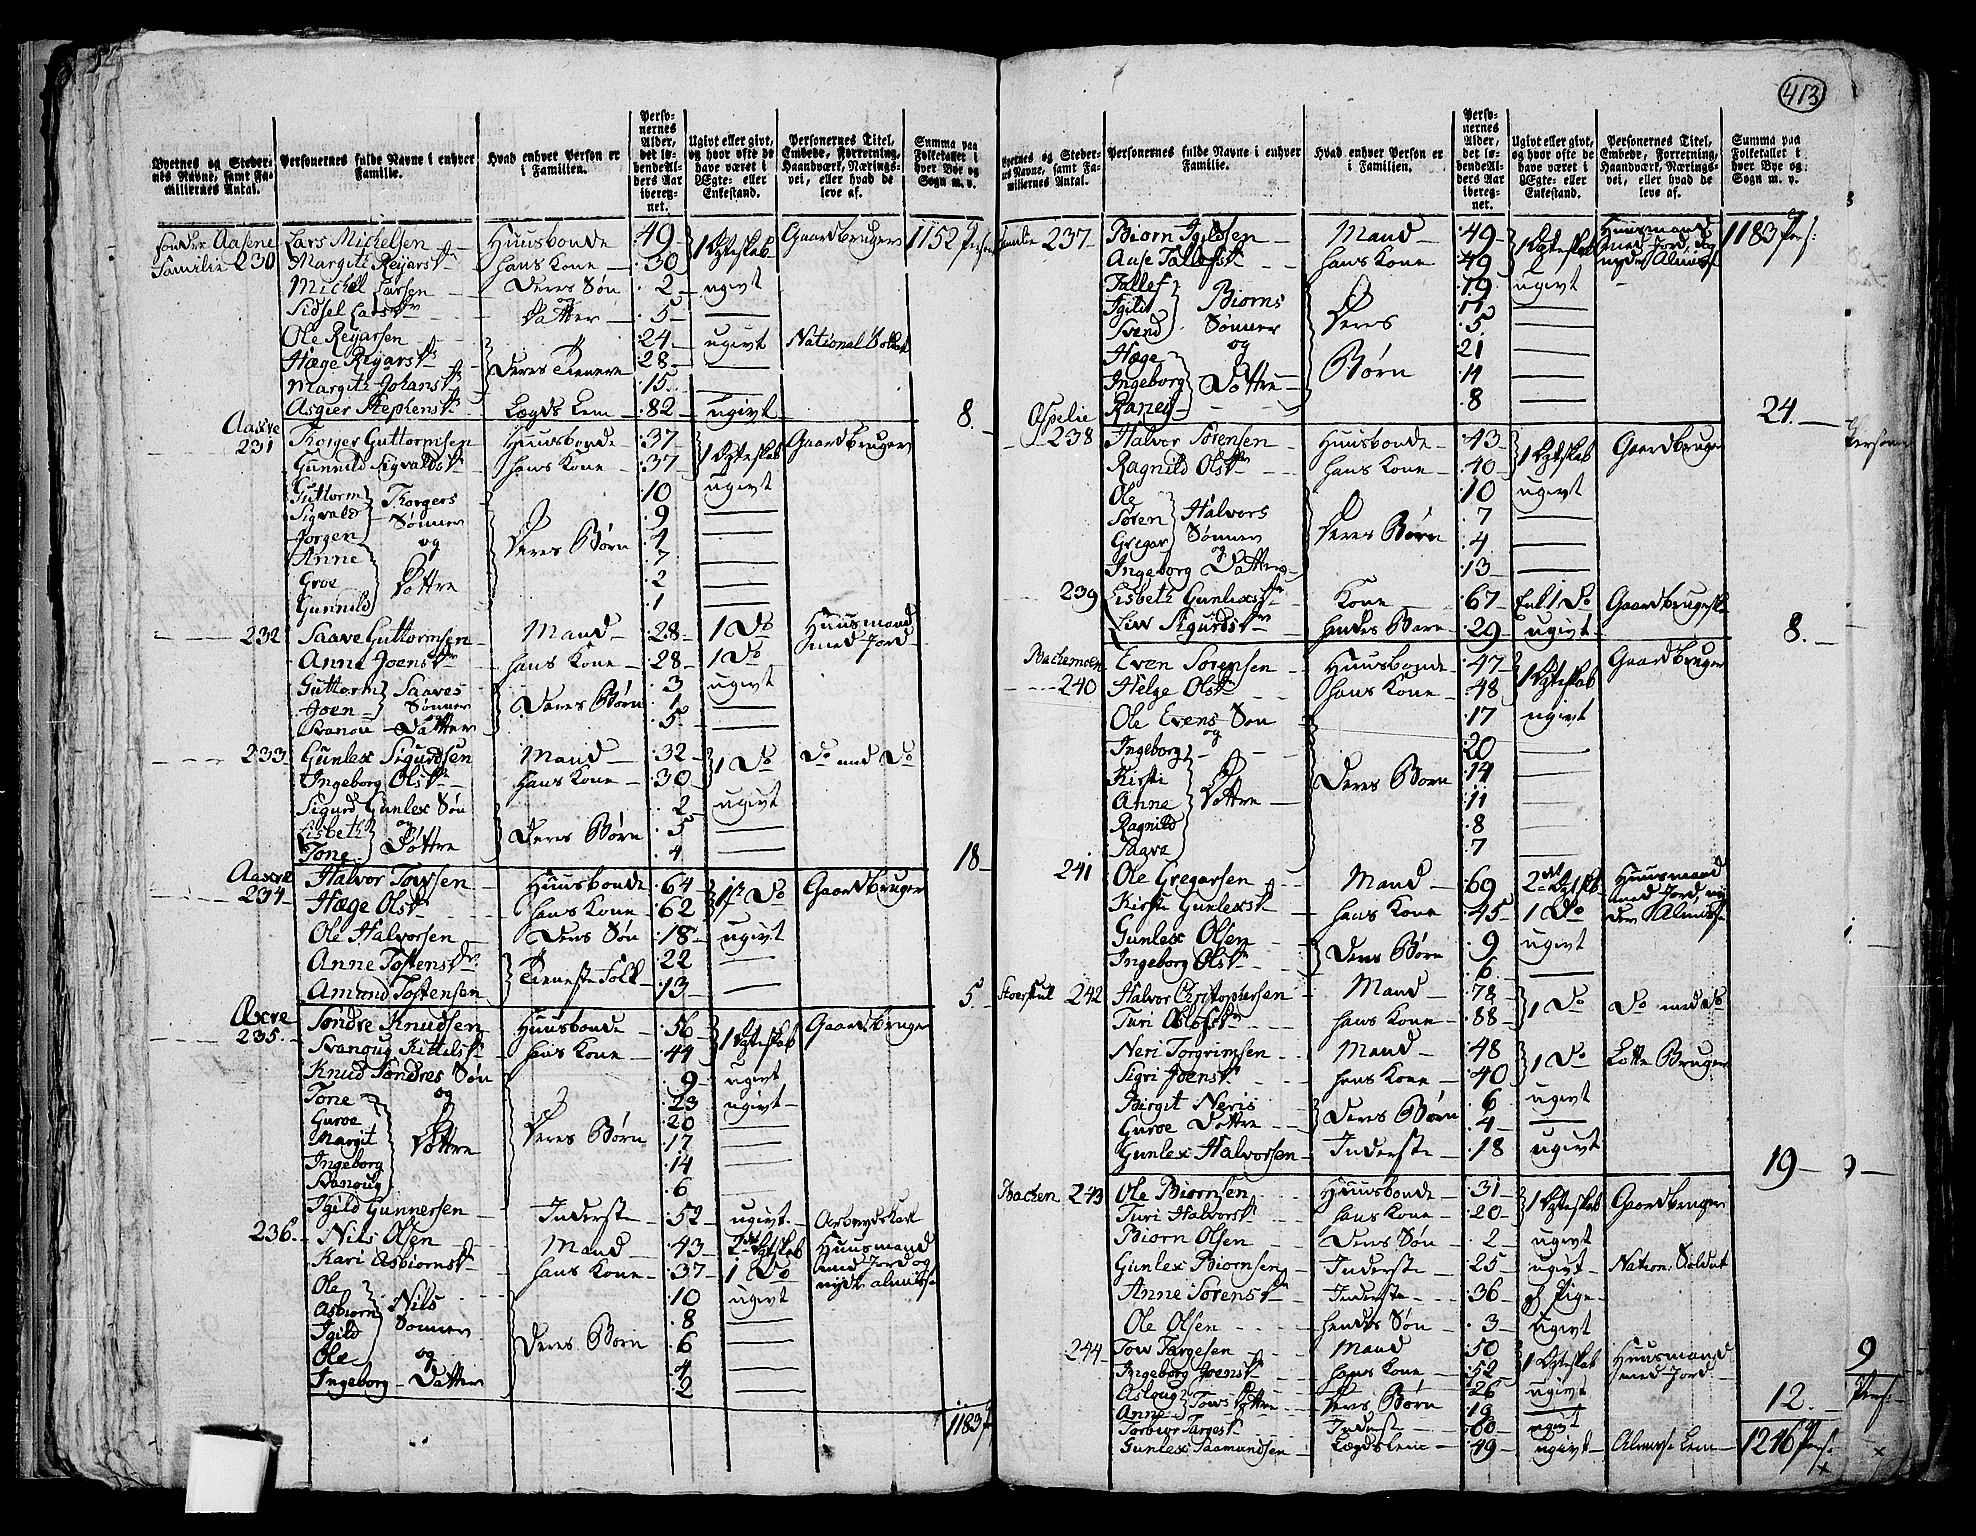 413
Byernes og Stedernes Navne, samt Familiernes Antal. | Personernes fulde Navne i enhver Familie. | Hvad enhver Person er i Familien. | Personernes Alder, det løbende Alders Aar iberegnet. | Ugivt eller givt, og hvor ofte de have været i Ægte- eller Enkestand. | Personernes Titel, Embede, Forretning, Haandværk, Næringsvei, eller hvad de leve af. | Summa paa Folketallet i hver Bye og Sogn m. v.
Sønder Aasene | Lars Michelsen | Huusbonde | 49 | 1 Ægteskab | Gaardbruger | 1152 Pers
Familie 230 | Margith Reijarsdr | hans Kone | 30
Michel Larsen | Deres Søn | 2 | ugivt
Sidsel Larsdr | og Datter | 5
Ole Reijarsen | 24 | ugivt | National Soldat
Hæge Reijarsdr | Deres Tienere | 28
Margith Johansdr | 15
Asgier Stephensdr | Lægds Lem | 82 | ugivt | 8.
Aasxre
231 | Thorger Guttormsen | Huusbonde | 37 | 1 Ægteskab | Gaardbruger
Gunnild Sigvaldsdr | hans Kone | 37
Guttorm | Thorgers | 10 | ugivt
Sigvald | Sønner | 9
Jorgen | og | Deres Børn | 4
Anne | 7
Groe | Døttre | 2
Gunnild | 1
232 | Saave Guttormsen | Mand | 28 | 1 Do | Huusmand
Anne Joensdr | hans Kone | 28 | 1 Do | med Jord
Guttorm | Saaves | 3 | ugivt
Joen | Sønner | Deres Børn | 1
Svanou | Datter | 5
233 | Gunlex Sigurdsen | Mand | 32 | 1 Do | Do med Do
Ingeborg Olsdr | Hans Kone | 30
Sigurd Gunlex Søn | 2 | ugivt
Lisbeth | og | Deres Børn | 5
Tone | Døttre | 4 | 18
Aasxre | Halvor Towsen | Huusbonde | 64 | 1 Do | Gaardbruger
234 | Hæge Olsdr | hans Kone | 62
Ole Halvorsen | Deres Søn | 18 | ugivt
Anne Tostensdr | Tieneste Folk | 22
Amund Tostensen | 13 | 5.
Asxre | Søndre Knudsen | Huusbonde | 56 | 1 Ægteskab | Gaardbruger
235 | Svanoug Kittelsdr | hans Kone | 44
Knud Søndres Søn | 9 | ugivt
Tone | og | 23 | ugivt
Guroe | 20
Margit | Døttre | Deres Børn | 17
Ingeborg | 14
Svanoug | 6
Igild Gunnersen | Inderste | 52 | ugivt | Arbeyds Karl
236 | Nils Olsen | Mand | 43 | 2det Ægteskab | Huusmand
Kari Asbiornsdr | hans Kone | 37 | 1 Do | med Jord og
Ole | 10 | ugivt | nyder almisse
Asbiorn | Nils | 8
Igild | Sønner | Deres Børn | 6
Ole | og | 4
Ingeborg | Datter | 2
1183 P
Byernes og Stedernes Navne, samt Familiernes Antal. | Personernes fulde Navne i enhver Familie. | Hvad enhver Person er i Familien. | Personernes Alder, det løbende Alders Aar iberegnet. | Ugivt eller givt, og hvor ofte de have været i Ægte- eller Enkestand. | Personernes Titel, Embede, Forretning, Haandværk, Næringsvei, eller hvad de leve af. | Summa paa Folketallet i hver Bye og Sogn m. v.
Familie 237 | Biorn Igildsen | Mand | 49 | 1 Ægteskab | Huusmand med Jord, og | 1183 Pers:
Aase Tallefsdr | hans Kone | 49 | nyder Almisse
Tallef | 19 | ugivt
Igild | Biorns | 17
Svend | Sønner | Deres | 5
Hæge | og | 21
Ingeborg | Døttre | Børn | 14
Raneij | 8 | 24
Ospelie
238 | Halvor Sørensen | Huusbonde | 43 | 1 Ægteskab | Gaardbruger
Ragnild Olsdr | hans Kone | 40
Ole | 10 | ugivt
Søren | Halvors | 7
Gregar | Sønner | Deres Børn | 4
Ingeborg | og Datter | 13
239 | Lisbeth Gunlexsdr | Kone | 67 | Enk 1 Do | Gaardbrugeske
Liw Sigurdsdr | hendes Barn | 29 | ugivt | 8.
Bachemoen | Even Sorensen | Huusbonde | 47 | 1 Ægteskab | Gaardbruger
240 | Helge Olsdr | hans Kone | 48
Ole Evens Søn | 17 | ugivt
Ingeborg | og | 20
Kirsti | 14
Anne | Døttre | Deres Børn | 11
Ragnild | 8
Saave | 7
241 | Ole Gregarsen | Mand | 69 | 2det Ægtesk | Huusmand
Kirsti Gunlexsdr | hans Kone | 45 | 1 Do | med Jord, nyder Almisse
Gunlex Olsen | Deres Børn | 9 | ugivt
Ingeborg Olsdr | 6
242 | Halvor Christophersen | Mand | 78 | 1 Do | Do med do
Turi Olsdr | hans Kone | 88
Neri Torgrimsen | Mand | 48 | 1 Do | Lotte Bruger
Sigri Joensdr | hans Kone | 40
Birgit | Neris | Deres Børn | 6 | ugivt
Guroe | Døttre | 4
Gunlex Halvorsen | Inderste | 18 | ugivt | 19
Bachen 243 | Ole Biornsen | Huusbonde | 31 | 1 Ægteskab | Gaardbruger
Turi Halvorsdr | hans Kone | 20
Biorn Olsen | Deres Søn | 2 | ugivt
Gunlex Biornsen | Inderste | 25 | ugivt | Nation: Soldat
Anne Sørensdr | Inderste | 36 | Pige
Ole Olsen | hendes Søn | 3 | ugivt
244 | Tow Targesen | Mand | 50 | 1 Ægteskab | Huusmand
Ingeborg Joensdr | hans Kone | 52 | med Jord
Aslaug | Tows | Deres Børn | 26 | ugivt
Anne | Døttre | 19
Torbiør Targesdr | Inderst | 60 | ugivt
Gunlex Saamundsen | Lægdslem | 49 | ugivt | Almisse Lem | 12.
1246 Pers:
9